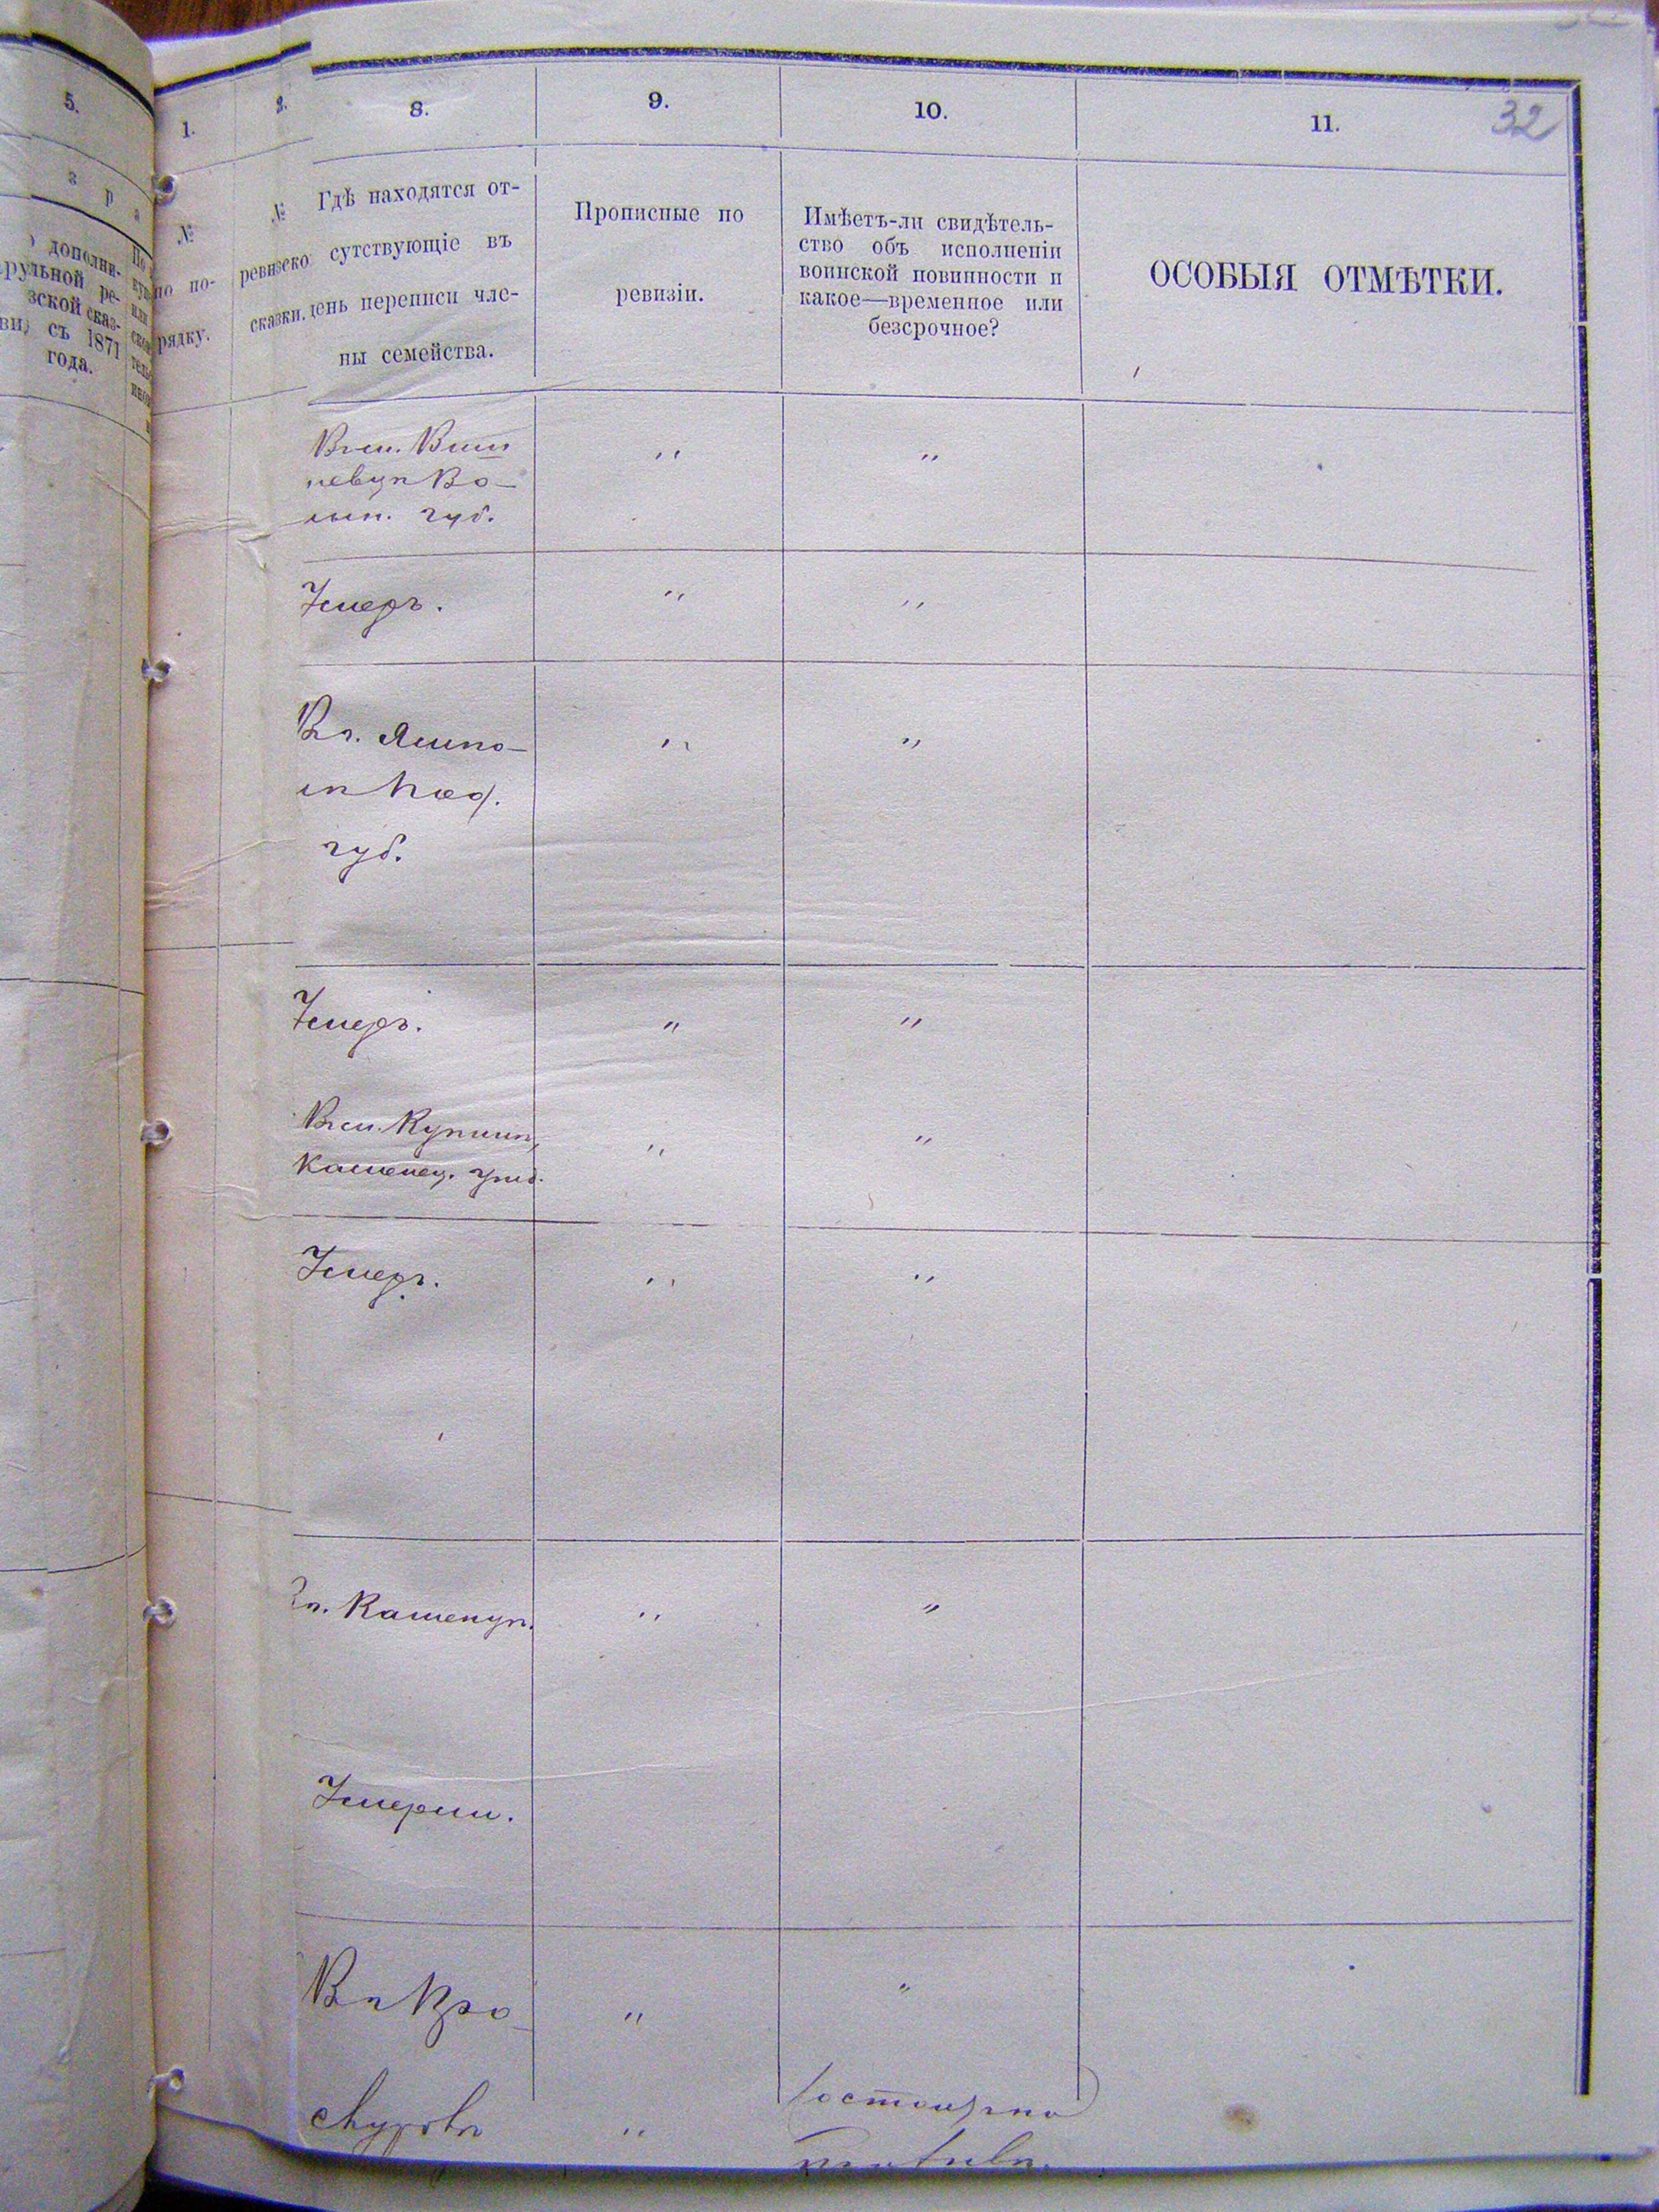 5.
з р а
дополни-
рульной ре-
зской сказ-
съ 1871
года.
1.
2.
8.
9.
10.
11.
32
№
по по-
рядку.
№
ревизско
сказки.
Гдѣ находятся от-
сутствующіе въ
день переписи чле-
ны семейства.
Прописные по
ревизіи.
Имѣетъ-ли свидѣтель-
ство объ исполненіи
воинской повинности и
какое—временное или
безсрочное?
ОСОБЫЯ ОТМѢТКИ.
Во-
лын. губ.
" "
Умеръ.
" "
Въ Ямпо-
лѣ Под.
губ.
" "
Умеръ.
" "
Въ м. Купинѣ,
Каменец. уѣзд.
" "
Умеръ.
" "
Въ. Каменцѣ.
" "
Умерли.
" "